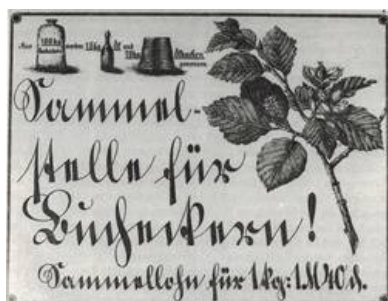 Aus 100 kg werden 15 kg Öl und Ölkuchen gewonnen.
Sammel-
stelle für
Bucheckern!
Sammellohn für 1 kg: 1 M 40 ₰.